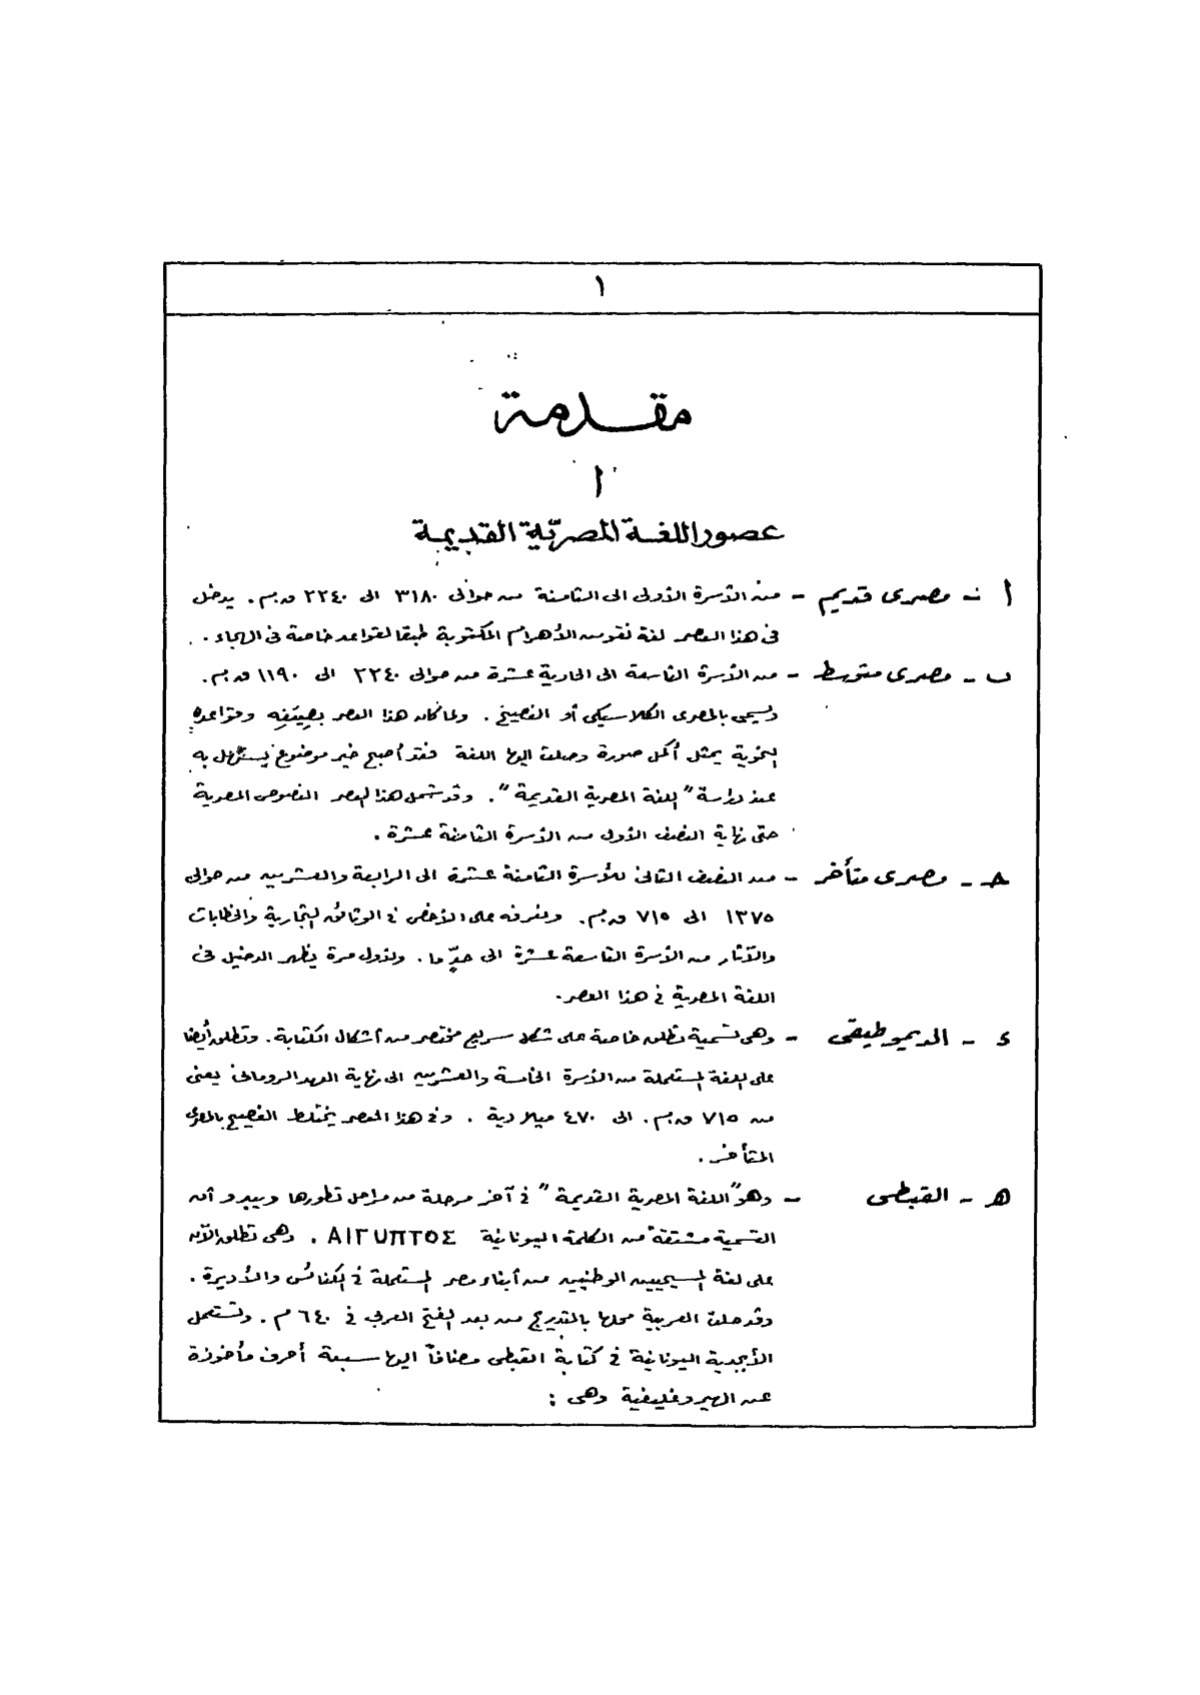 ١
مقدمة
١
عصور اللغة المصريّة القديمة
أ - مصرى قديم - من الأسرة الأولى الى الثامنة من حوالى ٣١٨٠ الى ٢٢٤٠ ق.م. يدخل
فى هذا العصر لغة نقوش الأهرام المكتوبة طبقا لقواعد خاصة فى الهجاء.
ب - مصرى متوسط - من الأسرة التاسعة الى الحادية عشرة من حوالى ٢٢٤٠ الى ١١٩٠ ق.م.
ويسمى بالمصرى الكلاسيكى أو الفصيح. ولما كان هذا العصر بصِيَغِه وقواعده
النحوية يمثل أكمل صورة وصلت اليها اللغة فقد أصبح خير موضوع يستهل به
عند دراسة "اللغة المصرية القديمة". وقد شمل هذا العصر النصوص المصرية
حتى نهاية النصف الأول من الأسرة الثامنة عشرة.
حـ - مصرى متأخر - من النصف الثانى للأسرة الثامنة عشرة الى الرابعة والعشرين من حوالى
١٣٧٥ الى ٧١٥ ق.م. ونعرفه على الأخص فى الوثائق التجارية والخطابات
والآثار من الأسرة التاسعة عشرة الى حدٍّ ما. ولأول مرة يظهر الدخيل فى
اللغة المصرية فى هذا العصر.
ء - الديموطيقى - وهى تسمية تطلق خاصة على شكل سريع مختصر من أشكال الكتابة. وتطلق أيضا
على اللغة المستعملة من الأسرة الخامسة والعشرين الى نهاية العهد الرومانى يعنى
من ٧١٥ ق.م. الى ٤٧٠ ميلادية. وفى هذا العصر يختلط الفصيح بالمصرى
المتأخر.
هـ - القبطى - وهو "اللغة المصرية القديمة" فى آخر مرحلة من مراحل تطورها ويبدو أن
التسمية مشتقة من الكلمة اليونانية ΑΙΓΥΠΤΟΣ. وهى تطلق الآن
على لغة المسيحيين الوطنيين من أبناء مصر المستعملة فى الكنائس والأديرة.
وقد حلت العربية محلها بالتدريج من بعد الفتح العربى فى ٦٤٠ م. وتستعمل
الأبجدية اليونانية فى كتابة القبطى مضافاً اليها سبعة أحرف مأخوذة
عن الهيروغليفية وهى :